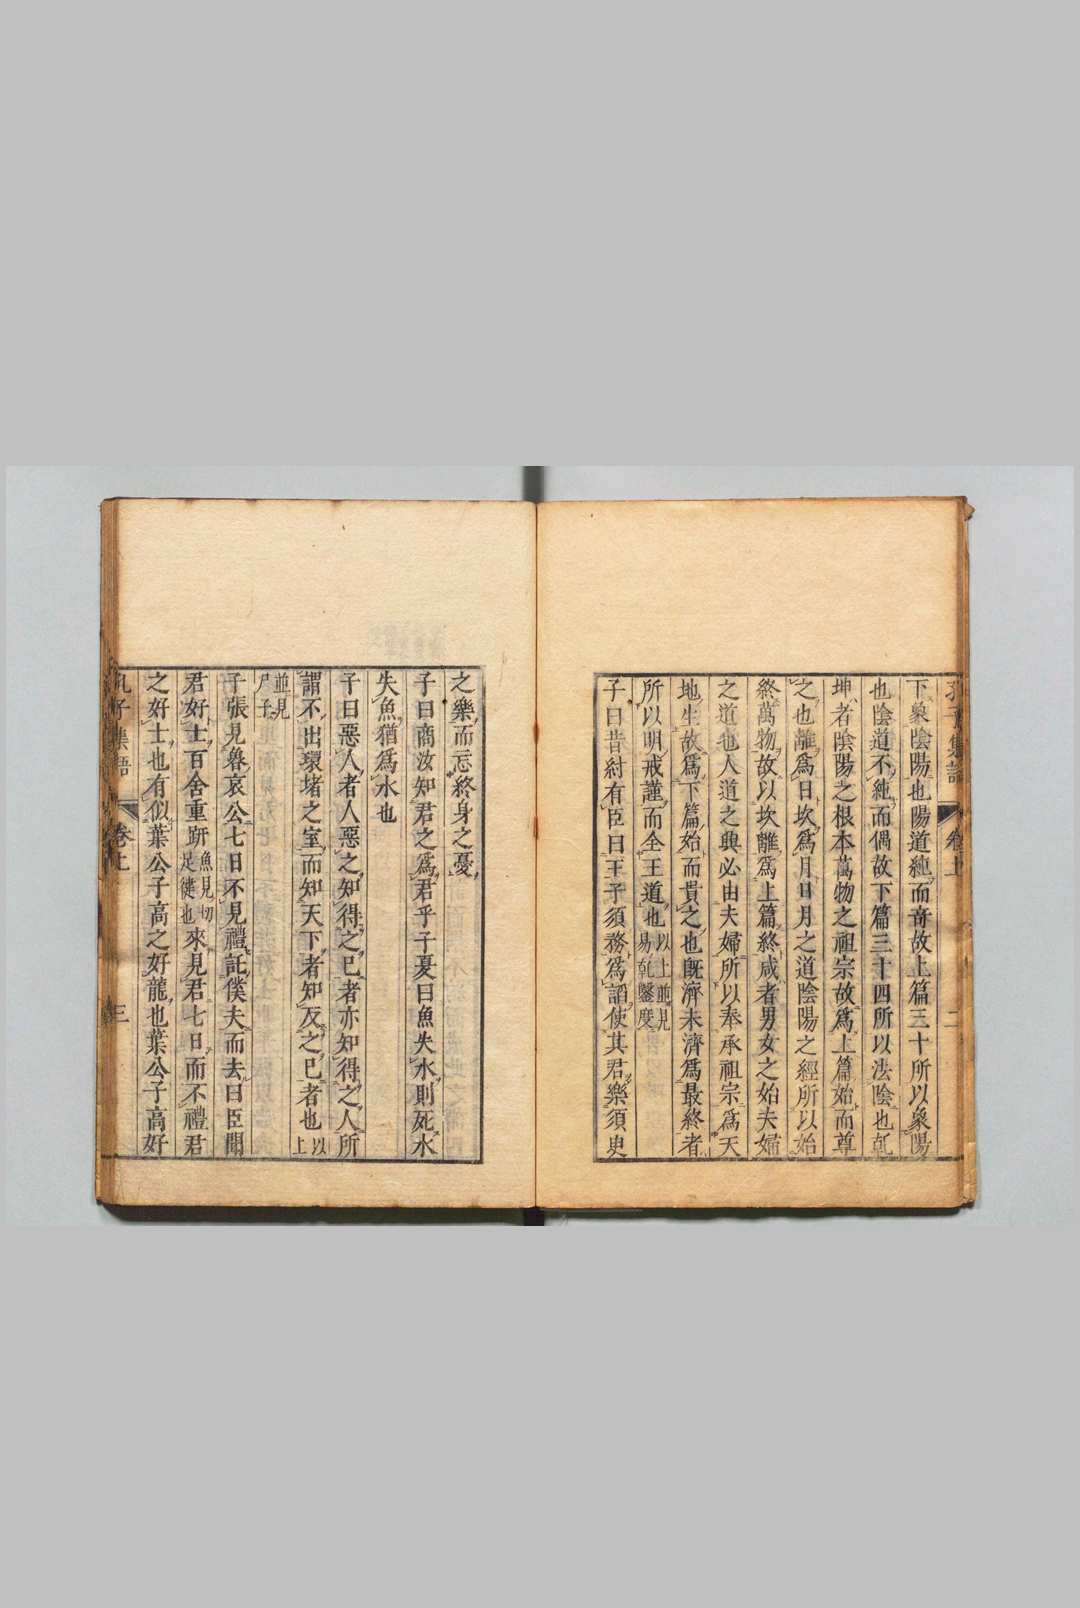 下象陰陽也陽道純而奇故上篇三十所以象陽
也陰道不純而偶故下篇三十四所以法陰也乾
坤者陰陽之根本萬物之祖宗故爲上篇始而尊
之也離爲日坎爲月日月之道陰陽之經所以始
終萬物故以坎離爲上篇終咸者男女之始夫婦
之道也人道之興必由夫婦所以奉承祖宗爲天
地生故爲下篇始而貴之也旣濟未濟爲最終者
所以明戒謹而全王道也以上並見易乾鑿度
子曰昔紂有臣曰王子須務爲諂使其君樂須臾
孔子集語 卷上 二
之樂而忘終身之憂
子曰商汝知君之爲君乎子夏曰魚失水則死水
失魚猶爲水也
子曰惡人者人惡之知得之巳者亦知得之人所
謂不出環堵之室而知天下者知反之巳者也以上
並見尸子
子張見魯哀公七日不見禮託僕夫而去曰臣聞
君好士百舍重趼魚見切足徤也來見君七日而不禮君
之好士也有似葉公子高之好龍也葉公子高好
孔子集語 卷上 三